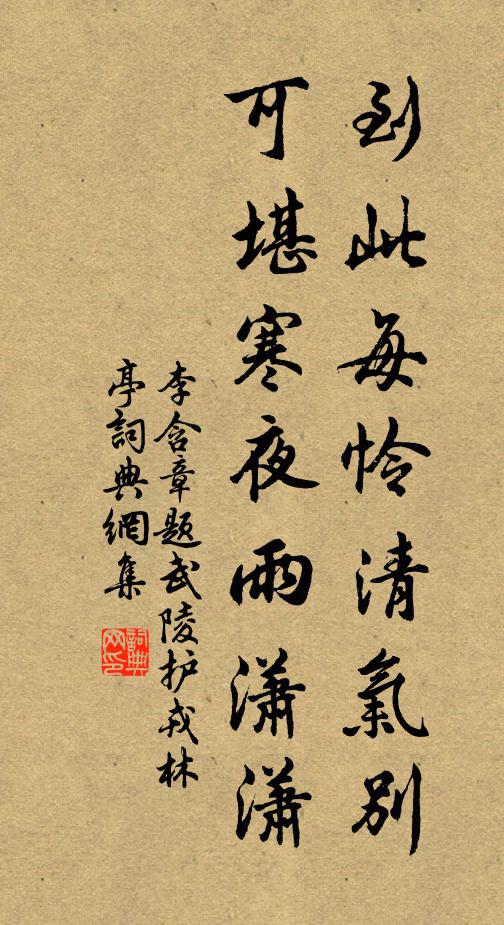 到此每怜清氣别
可堪寒夜雨瀟瀟
李含章題武陵护戎林
亭詞典網集
詞典网印